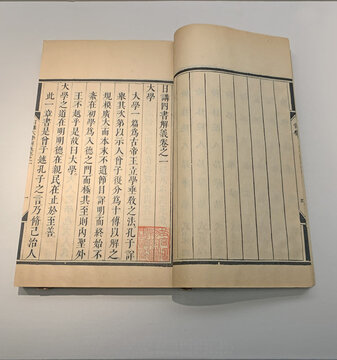 日講四書解義卷之一
大學
大學一篇爲古帝王立學垂教之法孔子詳
舉其次第以示人曾子復分爲十傳以解之
規模廣大而本末不遺節目詳明而終始不
紊在初學爲入德之門而極其至則內聖外
王不越乎是故曰大學
大學之道在明明德在親民在止於至善
此一章書是曾子述孔子之言乃脩己治人